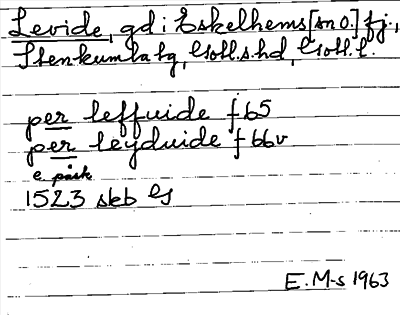 Levide, gd i Eskelhems [sn o.] fj.,
Stenkumla tg, Gotl.s.hd, Gotl. l.
per leffuide f 65
per leyduide f 66v
e. påsk
1523 skb
E. M-s 1963